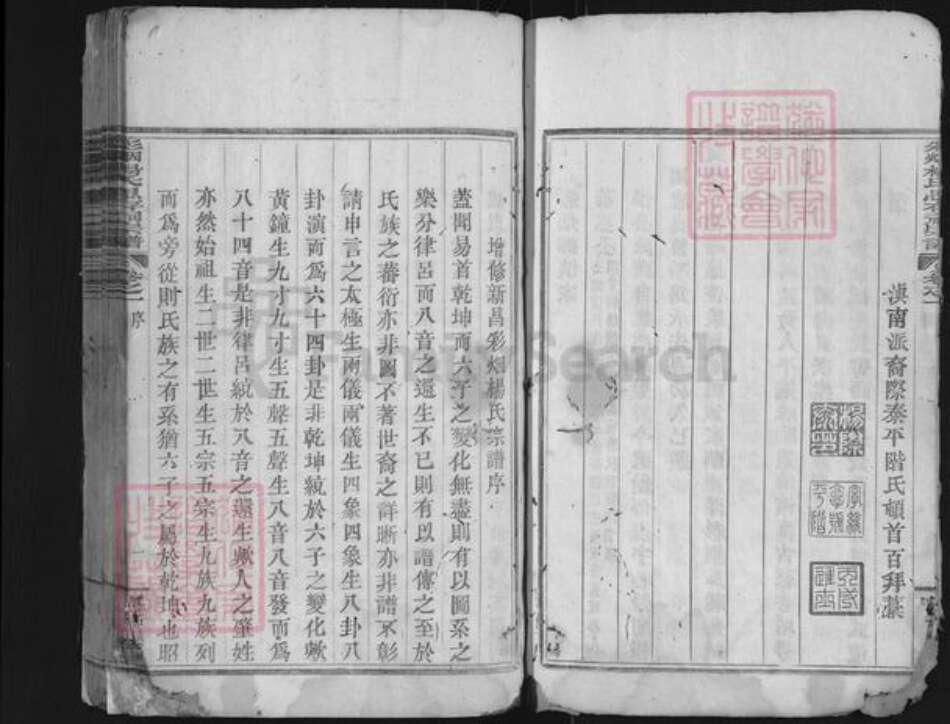 滇南派裔際泰平階氏頓首百拜藁
增修新昌彩烟楊氏宗譜序
蓋聞易首乾坤而六子之變化無盡則有以圖系之
樂分律呂而八音之還生不已則有以譜傳之至於
氏族之蕃衍亦非圖不著世裔之詳晰亦非譜不彰
請申言之太極生兩儀兩儀生四象四象生八卦八
卦演而為六十四卦是非乾坤統於六子之變化歟
黃鐘生九寸九寸生五聲五聲生八音八音發而為
八十四音是非律呂統於八音之還生歟人之肇姓
亦然始祖生二世二世生五宗五宗生九族九族列
而為旁從則氏族之有系猶六子之屬於乾坤也昭
序
FamilySearch